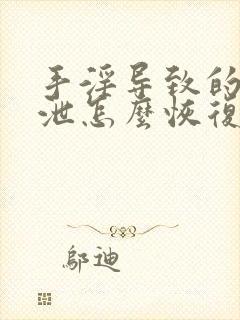 手淫导致的
泄怎麽恢復
邬迪